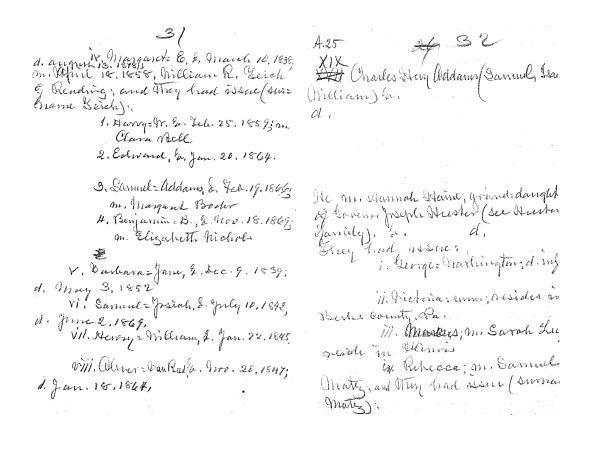 31
iv. Margaret E. b. March 10, 1838;
d. August 13, 1878;
m. April 18. 1858, William R. Zeich
of Reading; and they had issue (sur=
name Zeich):
1. Harry=W. b. Feb. 25. 1859; m.
Clara Bell
2. Edward, b. Jan. 20. 1864.
3. Samuel=Addams, b. Feb. 19. 1866;
m. Margaret Boder
4. Benjamin=B., b. Nov. 18. 1869;
m. Elizabeth Nichols
v. Barbara=Jane, b. Dec. 9. 1839;
d. May 3, 1852
vi. Samuel=Josiah, b. July 10, 1842,
d. June 2. 1869.
vii. Henry=William, b. Jan. 22. 1845.
viii. Oliver=VanReed, b. Nov. 28, 1847;
d. Jan. 18. 1864,
A.25
32
XIX
Charles Henry Addams (Samuel, Isa
William) b.
d.
He m. Hannah Haine, grand=daught
of Governor Joseph Hiester (see Hiester
Family). b. d.
They had issue:
i. George=Washington; d. inf
ii. Victoria; unm; resides in
Berks County, Pa.
iii. m. Sarah Lee
reside in Illinois
ix Rebecca; m. Samuel
Maltz, and they had issue (surna
Maltz):